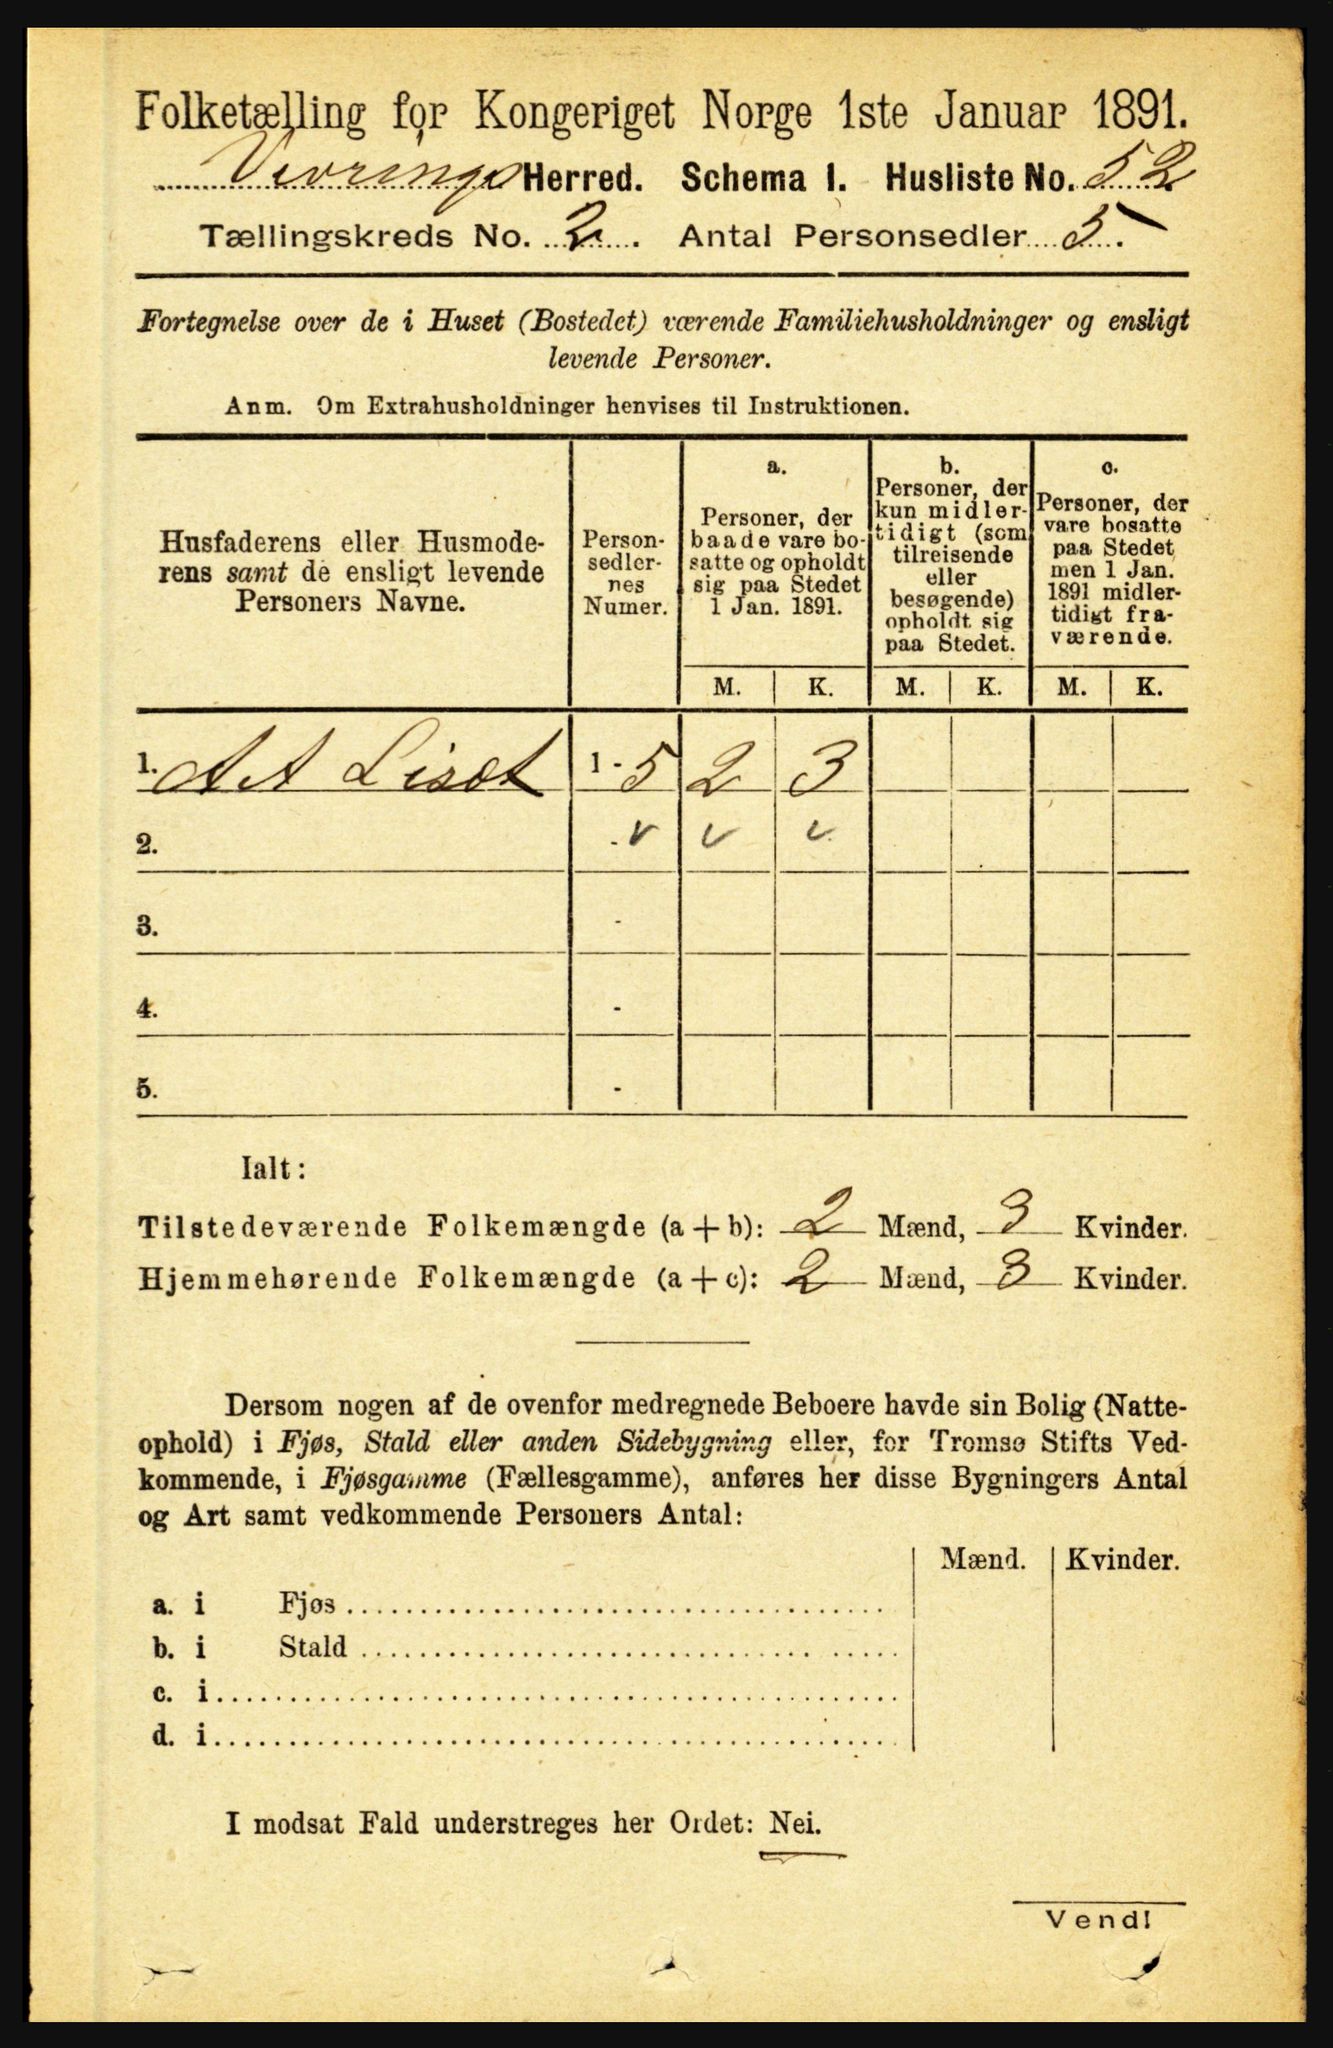 Folketælling for Kongeriget Norge 1ste Januar 1891.
Vevrings Herred. Schema 1. Husliste No. 52
Tællingskreds No. 2. Antal Personsedler 5.
Fortegnelse over de i Huset (Bostedet) værende Familiehusholdninger og ensligt
levende Personer.
Anm. Om Extrahusholdninger henvises til Instruktionen.
Husfaderens eller Husmode-
rens samt de ensligt levende
Personers Navne.
Person-
sedler-
nes
Numer.
a.
Personer, der
baade vare bo-
satte og opholdt
sig paa Stedet
1 Jan. 1891.
b.
Personer, der
kun midler-
tidigt (som
tilreisende
eller
besøgende)
opholdt sig
paa Stedet.
c.
Personer, der
vare bosatte
paa Stedet
men 1 Jan.
1891 midler-
tidigt fra-
værende.
M. K. M. K. M. K.
1. A A Lisæt 1 - 5 2 3
2. - v v v
3. -
4. -
5. -
Ialt:
Tilstedeværende Folkemængde (a + b): 2 Mænd, 3 Kvinder.
Hjemmehørende Folkemængde (a + c): 2 Mænd, 3 Kvinder.
Dersom nogen af de ovenfor medregnede Beboere havde sin Bolig (Natte-
ophold) i Fjøs, Stald eller anden Sidebygning eller, for Tromsø Stifts Ved-
kommende, i Fjøsgamme (Fællesgamme), anføres her disse Bygningers Antal
og Art samt vedkommende Personers Antal:
Mænd. Kvinder.
a. i Fjøs
b. i Stald
c. i
d. i
I modsat Fald understreges her Ordet: Nei.
Vend!